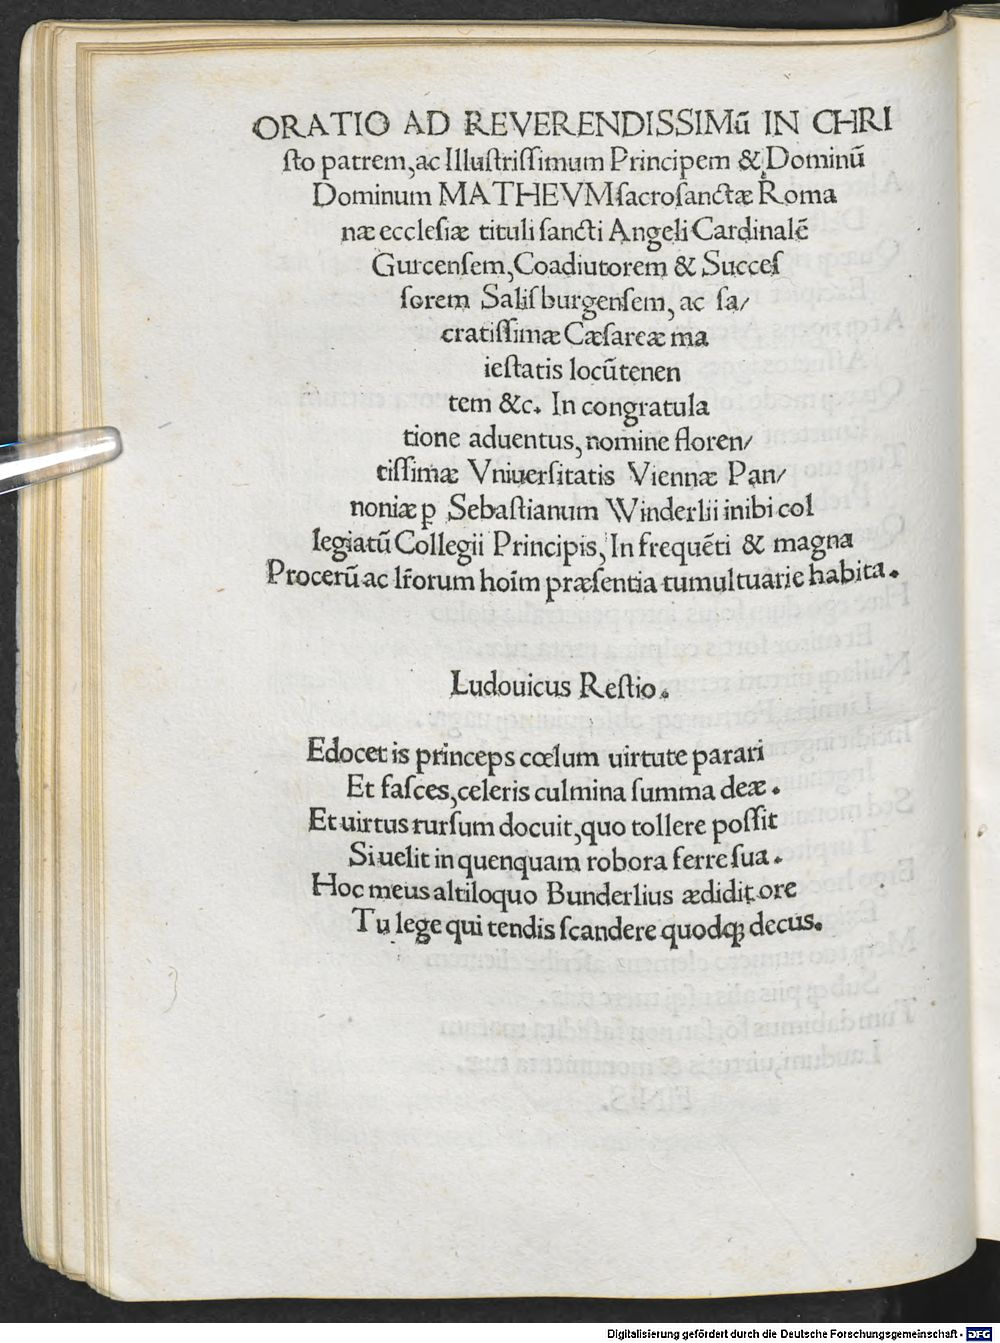 ORATIO AD REVERENDISSIMū IN CHRI
ſto patrem, ac Illuſtriſſimum Principem & Dominū
Dominum MATHEVM ſacroſanctæ Roma
næ eccleſiæ tituli ſancti Angeli Cardinalē
Gurcenſem, Coadiutorem & Succeſ
ſorem Saliſburgenſem, ac ſa/
cratiſſimæ Cæſareæ ma
ieſtatis locūtenen
tem &c. In congratula
tione aduentus, nomine floren/
tiſſimæ Vniuerſitatis Viennæ Pan/
noniæ ꝑ Sebaſtianum Winderlii inibi col
legiatū Collegii Principis, In frequēti & magna
Procerū ac lr̄orum hoīm præſentia tumultuarie habita.
Ludouicus Reſtio.
Edocet is princeps cœlum uirtute parari
Et faſces, celeris culmina ſumma deæ.
Et uirtus rurſum docuit, quo tollere poſſit
Si uelit in quenquam robora ferre ſua.
Hoc meus altiloquo Bunderlius ædidit ore
Tu lege qui tendis ſcandere quodqꝫ decus.
Digitalisierung gefördert durch die Deutsche Forschungsgemeinschaft - DFG